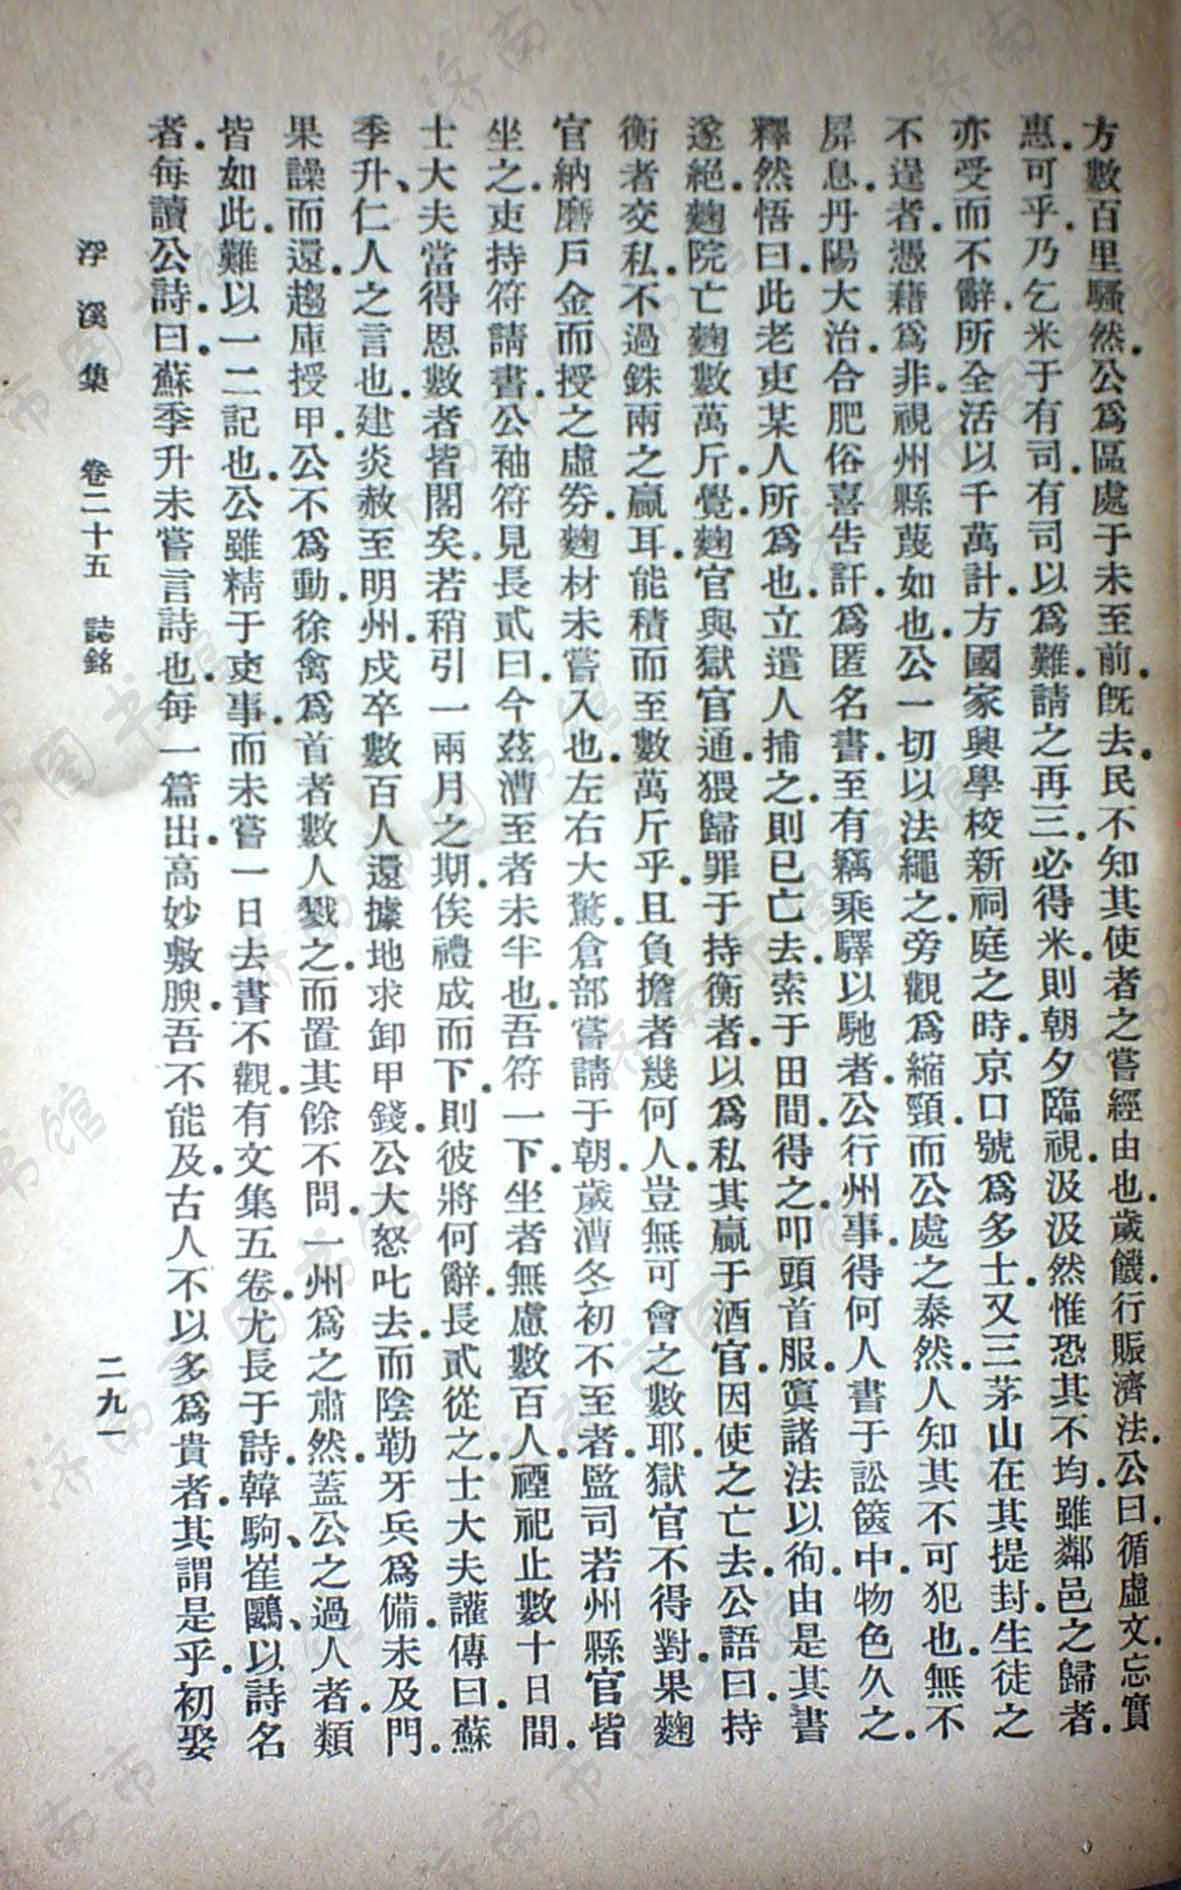 方數百里騷然.公爲區處于未至前.既去.民不知其使者之嘗經由也.歲饑.行賑濟法.公曰.循虛文.忘實
惠.可乎.乃乞米于有司.有司以爲難.請之再三.必得米.則朝夕臨視.汲汲然惟恐其不均.雖鄰邑之歸者.
亦受而不辭.所全活以千萬計.方國家興學校.新祠庭之時.京口號爲多士.又三茅山在其提封.生徒之
不逞者.憑藉爲非.視州縣蔑如也.公一切以法繩之.旁觀爲縮頸.而公處之泰然.人知其不可犯也.無不
屏息.丹陽大治.合肥俗喜告訐.爲匿名書.至有竊乘驛以馳者.公行州事.得何人書于訟篋中.物色久之.
釋然悟曰.此老吏某人所爲也.立遣人捕之.則已亡去.索于田間得之.叩頭首服.寘諸法以徇.由是其書
遂絕.麴院亡麴數萬斤.覺.麴官與獄官通.猥歸罪于持衡者.以爲私其贏于酒官.因使之亡去.公語曰.持
衡者交私.不過銖兩之贏耳.能積而至數萬斤乎.且負擔者幾何人.豈無可會之數耶.獄官不得對.果麴
官納磨戶金而授之虛券.麴材未嘗入也.左右大驚.倉部嘗請于朝.歲漕冬初不至者.監司若州縣官皆
坐之.吏持符請書.公袖符見長貳曰.今茲漕至者未半也.吾符一下.坐者無慮數百人.禋祀止數十日間.
士大夫當得恩數者皆閣矣.若稍引一兩月之期.俟禮成而下.則彼將何辭.長貳從之.士大夫讙傳曰.蘇
季升、仁人之言也.建炎赦至明州.戍卒數百人還據地求卸甲錢.公大怒叱去.而陰勒牙兵爲備.未及門.
果譟而還.趨庫授甲.公不爲動.徐禽爲首者數人戮之.而置其餘不問.一州爲之肅然.蓋公之過人者.類
皆如此.難以一二記也.公雖精于吏事.而未嘗一日去書不觀.有文集五卷.尤長于詩.韓駒、崔鷗、以詩名
者.每讀公詩.曰.蘇季升未嘗言詩也.每一篇出.高妙敷腴.吾不能及.古人不以多爲貴者.其謂是乎.初娶
浮溪集 卷二十五 誌銘
二九一